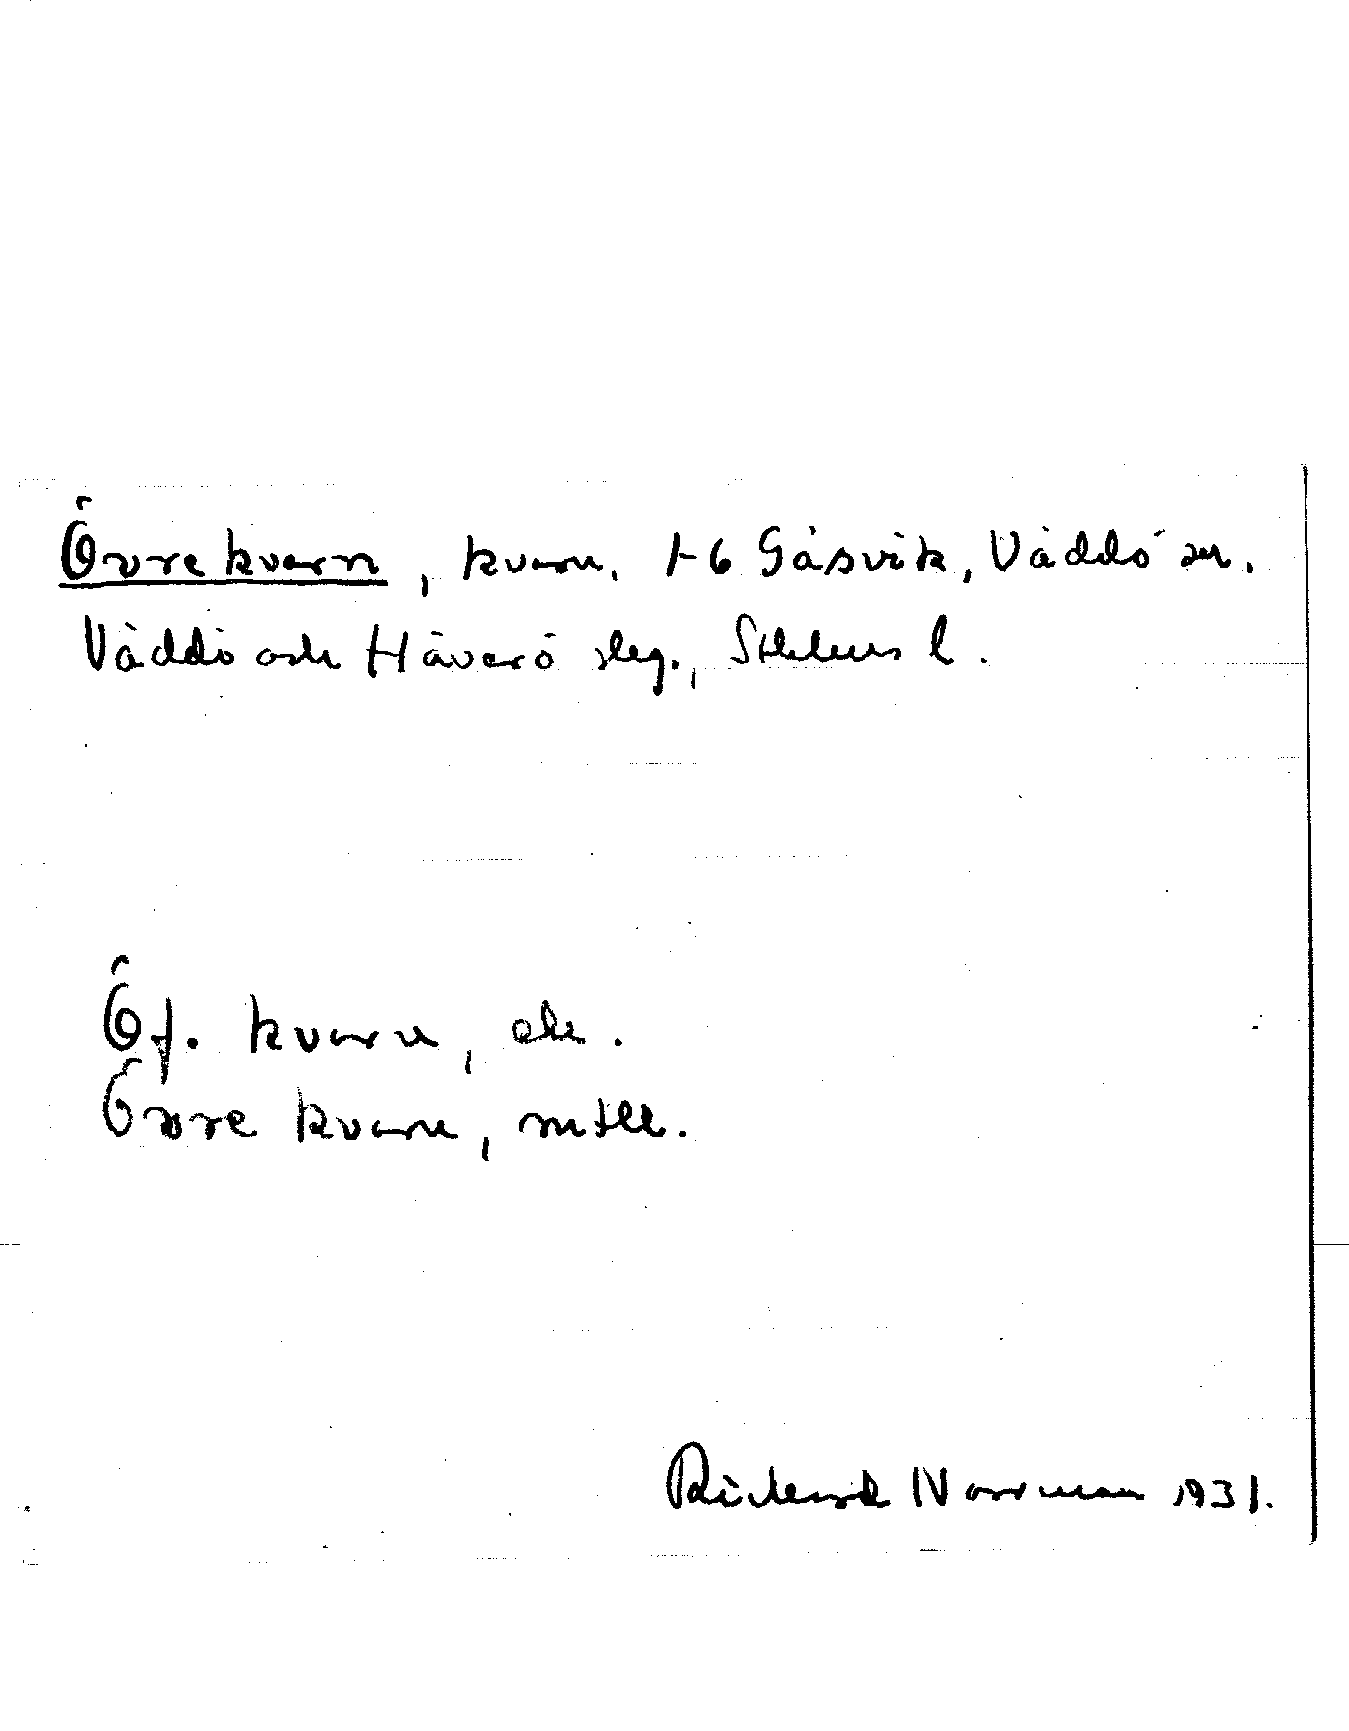 Övre kvarn, kvarn, 1-6 Gåsvik, Väddö sn.
Väddö och Häverö slag., Sthlms l.
Öf. kvarn, ek.
Övre kvarn, mtll.
Rickard Norrman 1931.